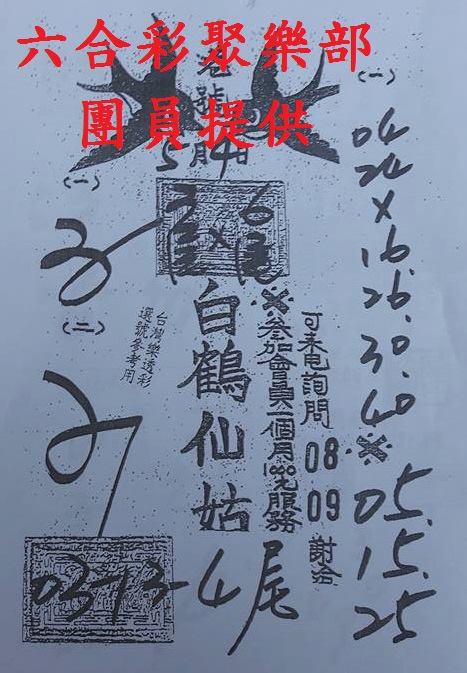 六合彩聚樂部
團員提供
5月4日
(一)
(二)
台灣樂透彩
選號參考用
白鶴仙姑
※參加會員一個月1000元服務
可來电詢問
08
09
謝洽
03-13-4尾
(一)
04
24
×
16.
26.
30.
40
※
05.
15.
25